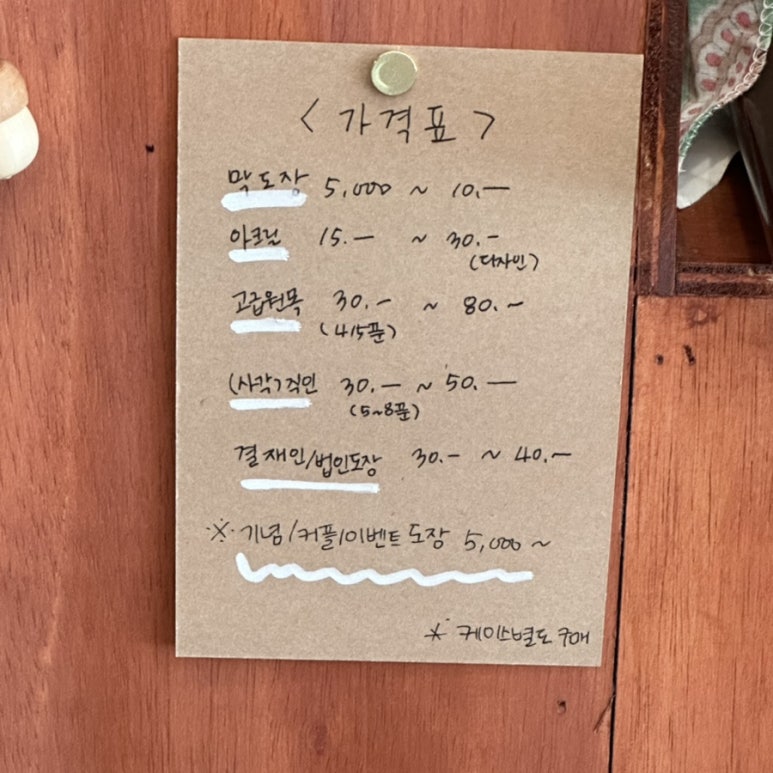 < 가격표 >
막도장 5,000 ~ 10.—
아크릴 15.— ~ 30.—
(디자인)
고급원목 30.— ~ 80.—
(4/5푼)
(사각)직인 30.— ~ 50.—
(5~8푼)
결재인/법인도장 30.— ~ 40.—
※ 기념/커플/이벤트 도장 5,000 ~
※ 케이스별도 구매